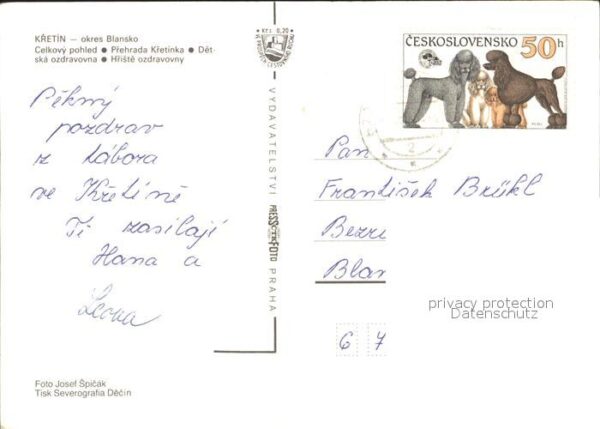 KŘETÍN – okres Blansko
Celkový pohled ● Přehrada Křetínka ● Dět-
ská ozdravovna ● Hřiště ozdravovny
Kčs 0,20
ČESKOSLOVENSKO 50h
Pěkný
pozdrav
z tábora
ve Křetíně
Ti zasílají
Hana a
Leona
VYDAVATELSTVÍ PRESSFOTO PRAHA
Pan
František Brükl
Bezre
Blan
privacy protection
Datenschutz
6 7
Foto Josef Špičák
Tisk Severografia Děčín